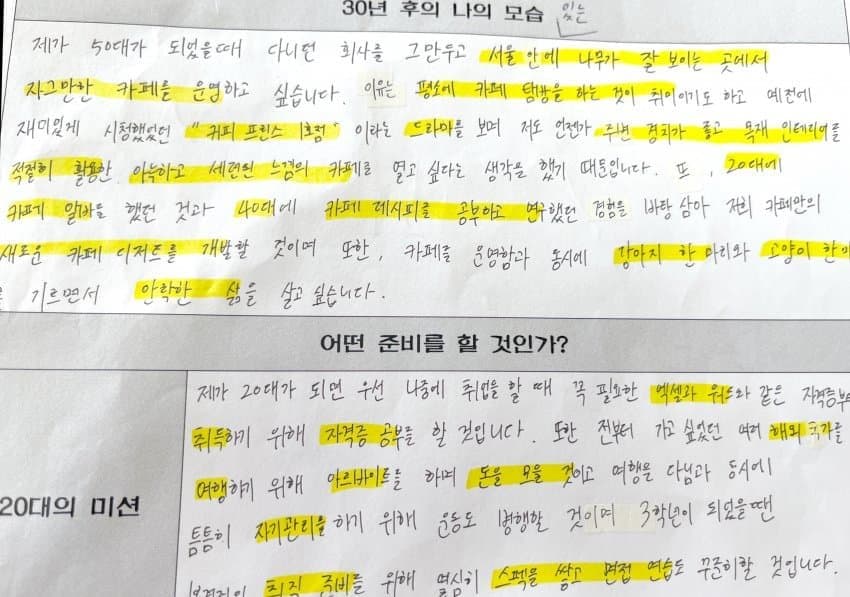 30년 후의 나의 모습 있는
제가 50대가 되었을때 다니던 회사를 그만두고 서울 안에 나무가 잘 보이는 곳에서
자그만한 카페를 운영하고 싶습니다. 이유는 평소에 카페 탐방을 하는 것이 취미이기도 하고 예전에
재미있게 시청했었던 "커피 프린스 1호점" 이라는 드라마를 보며 저도 언젠가 주변 경치가 좋고 목재 인테리어를
적절히 활용한 아늑하고 세련된 느낌의 카페를 열고 싶다는 생각을 했기 때문입니다. 또, 20대에
카페 알바를 했던 것과 40대에 카페 레시피를 공부하고 연구했던 경험을 바탕 삼아 저희 카페만의
새로운 카페 디저트를 개발할 것이며 또한, 카페를 운영함과 동시에 강아지 한 마리와 고양이 한
를 기르면서 안락한 삶을 살고 싶습니다.
어떤 준비를 할 것인가?
제가 20대가 되면 우선 나중에 취업을 할 때 꼭 필요한 엑셀과 워드와 같은 자격증부
취득하기 위해 자격증 공부를 할 것입니다. 또한 전부터 가고 싶었던 여러 해외 국가를
여행하기 위해 아르바이트를 하며 돈을 모을 것이고 여행을 다님과 동시에
20대의 미션
틈틈히 자기관리를 하기 위해 운동도 병행할 것이며 3학년이 되었을땐
취직 준비를 위해 열심히 스펙을 쌓고 면접 연습도 꾸준히할 것입니다.